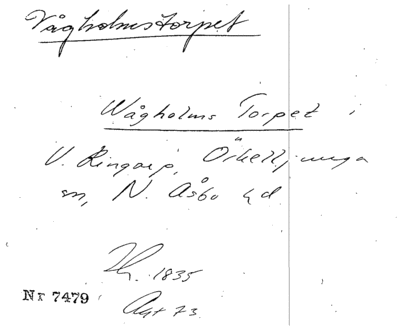 Vågholmstorpet
Wågholms Torpet i
V. Ringarp, Örkelljunga
sn, N. Åsbo hd
1835
Nr 7479
Akt 73